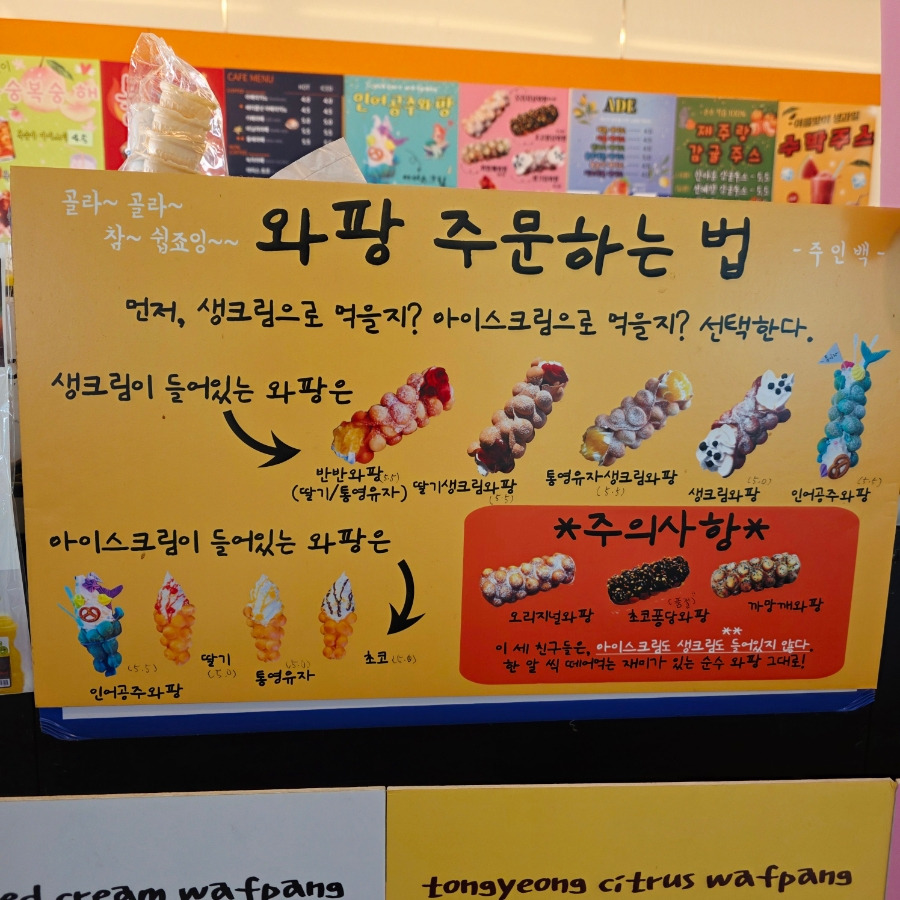 숭복숭해
CAFE MENU
인어공주와팡
ADE
제주랑
감귤 주스
수박주스
골라~ 골라~
참~ 쉽죠잉~~
와팡 주문하는 법
- 주인백 -
먼저, 생크림으로 먹을지? 아이스크림으로 먹을지? 선택한다.
생크림이 들어있는 와팡은
반반와팡(5.5)
(딸기/통영유자)
딸기생크림와팡
(5.5)
통영유자생크림와팡
(5.5)
생크림와팡 (5.0)
인어공주와팡
아이스크림이 들어있는 와팡은
인어공주와팡 (5.5)
딸기
(5.0)
통영유자
초코
*주의사항*
오리지널와팡
초코퐁당와팡
(품절)
까망깨와팡
이 세 친구들은, 아이스크림도 생크림도 들어있지 않다.
한 알 씩 떼어먹는 재미가 있는 순수 와팡 그대로!
ed cream wafpang
tongyeong citrus wafpang